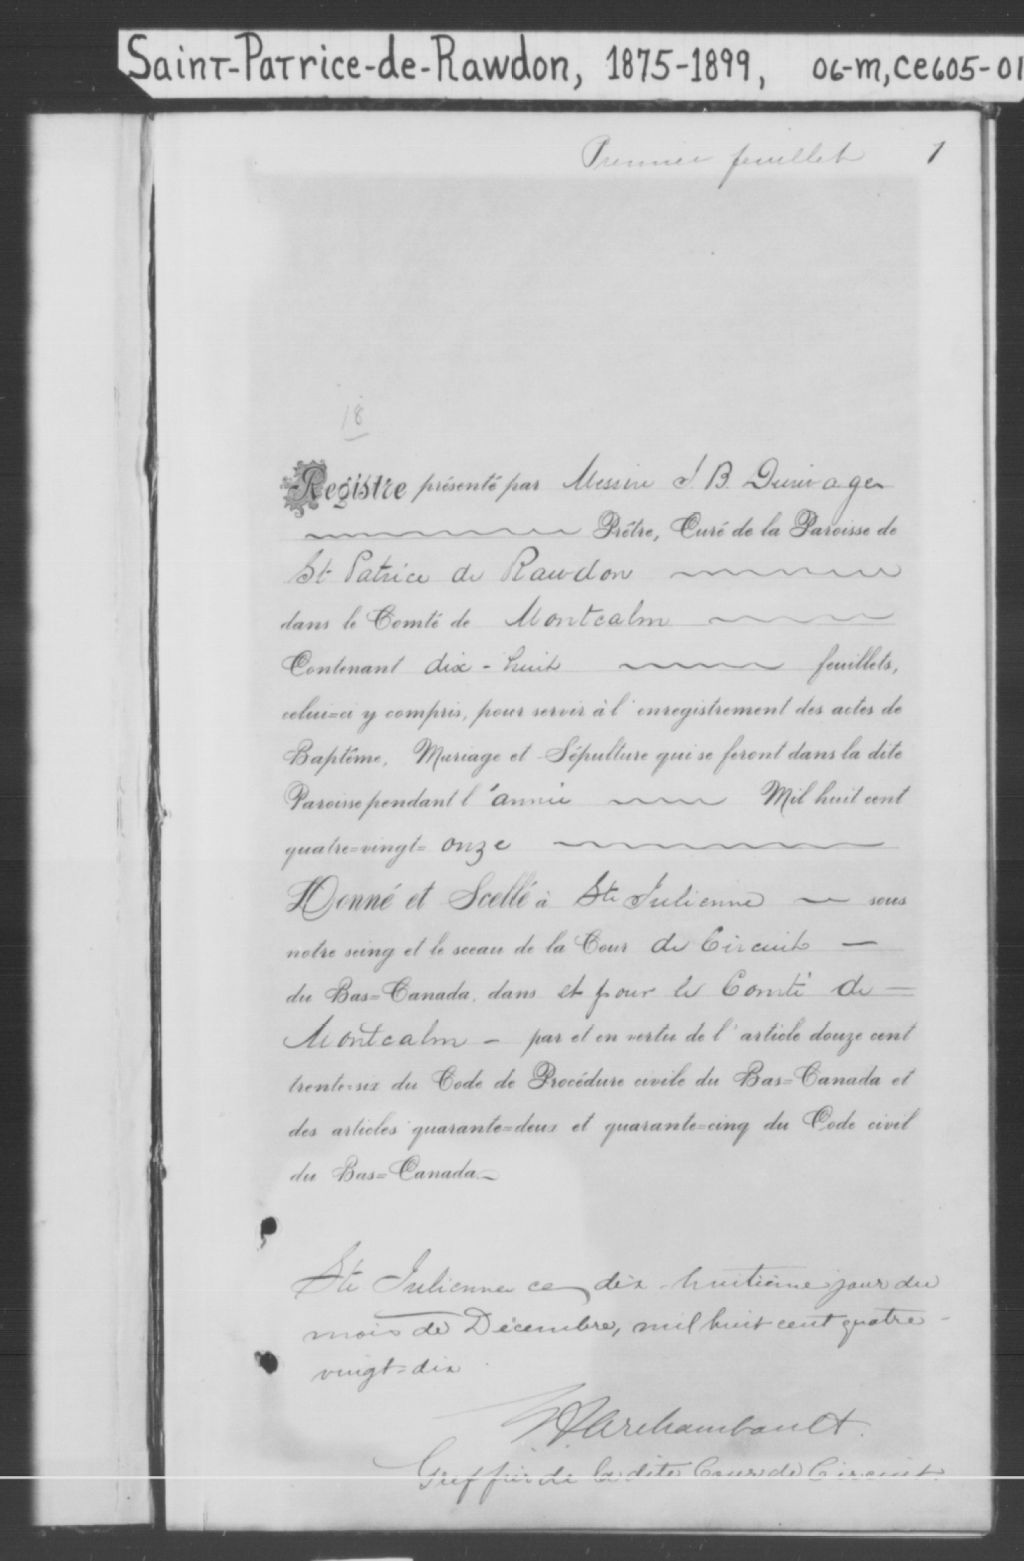 Saint-Patrice-de-Rawdon, 1875-1899, 06-m,ce605-01
Premier feuillet 1
18
Registre présenté par Messire J B
Prêtre, Curé de la Paroisse de
St Patrice de Rawdon
dans le Comté de Montcalm
Contenant dix-huit feuillets,
celui=ci y compris, pour servir à l'enregistrement des actes de
Baptême, Mariage et Sépulture qui se feront dans la dite
Paroisse pendant l'année Mil huit cent
quatre=vingt= onze
Donné et Scellé à Ste Julienne sous
notre seing et le sceau de la Cour de Circuit
du Bas=Canada, dans et pour le Comté de
Montcalm - par et en vertu de l'article douze cent
trente=six du Code de Procédure civile du Bas=Canada et
des articles quarante=deux et quarante=cinq du Code civil
du Bas=Canada
Ste Julienne ce dix-huitième jour du
mois de Décembre, mil huit cent quatre-
vingt=dix
Archambault
Greffier de la dite Cour de Circuit.